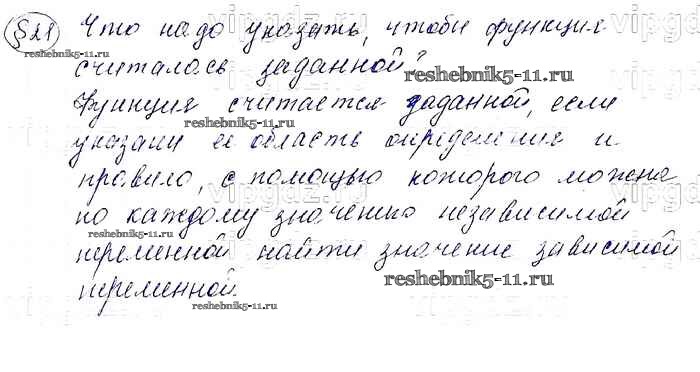 §21 Что надо указать, чтобы функция
считалась заданной?
Функция считается заданной, если
указани ее область определения и
правило, с помощью которого можно
по каждому значению независимой
переменной найти значение зависимой
переменной.
reshebnik5-11.ru
reshebnik5-11.ru
reshebnik5-11.ru
reshebnik5-11.ru
reshebnik5-11.ru
reshebnik5-11.ru